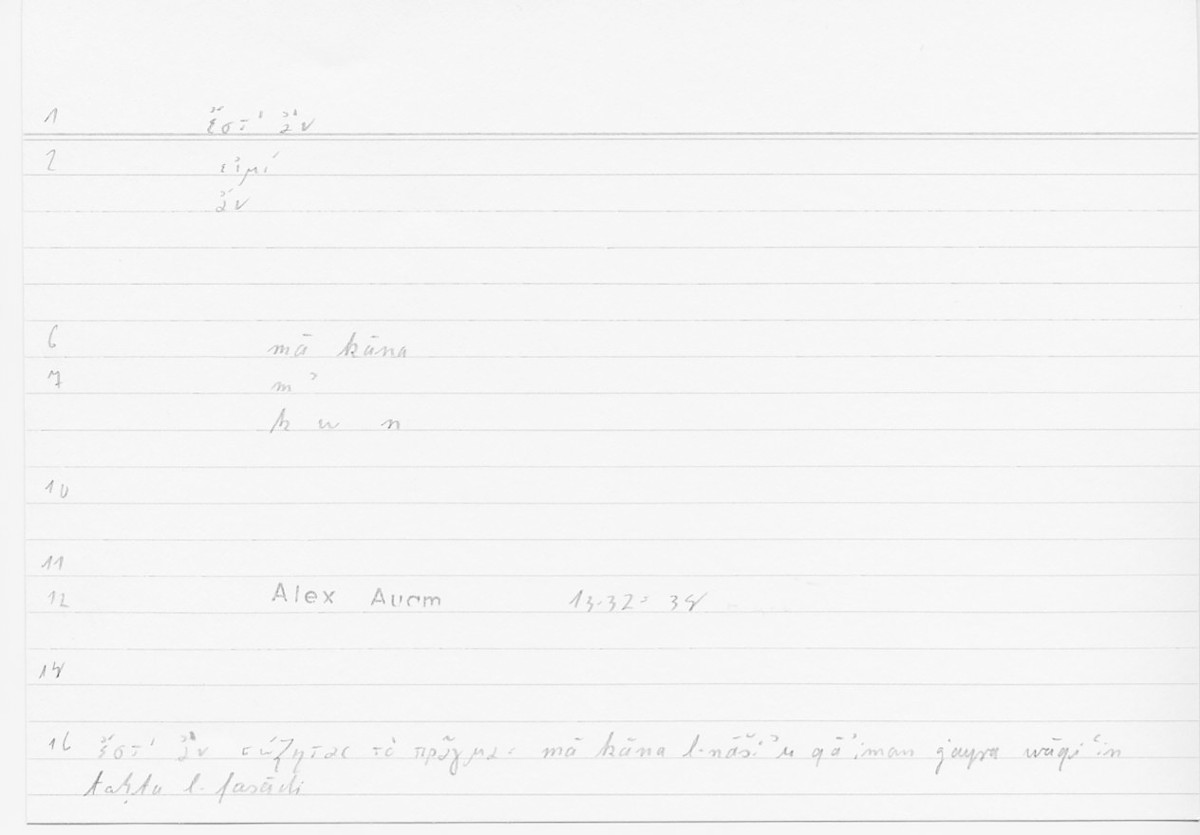 1 ἔστ' ἂν
2 εἰμί
ἄν
6 mā kāna
7 m ʾ
k w n
10
11
12 Alex An. 13.32 =
14
16 ἔστ' ἂν σώζηται τὸ πρᾶγμα: mā kāna l-nāšiʾu qāʾiman ġayra wāqiʿin
taḥta l-fasādi